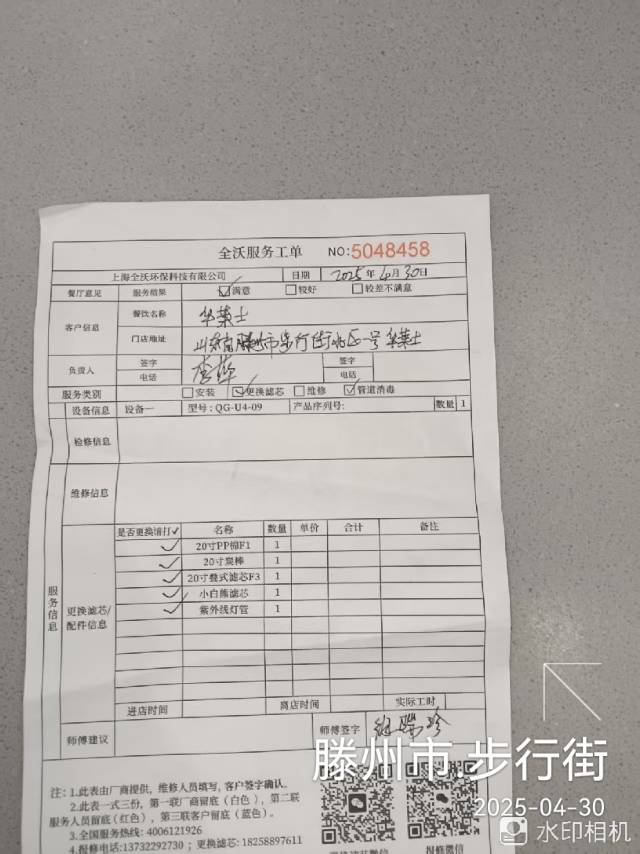 全沃服务工单 NO:5048458
上海全沃环保科技有限公司 日期 2025年4月30日
餐厅意见 服务结果 ☑满意 □较好 □较差不满意
客户信息 餐饮名称 华莱士
门店地址 山东省滕州市步行街北区一号华莱士
负责人 签字 签字
电话 电话
服务类别 □安装 ☑更换滤芯 □维修 ☑管道消毒
设备信息 设备一 型号:QG-U4-09 产品序列号: 数量 1
检修信息
维修信息
服务信息
更换滤芯/配件信息
是否更换请打✓ 名称 数量 单价 合计 备注
✓ 20寸PP棉F1 1
✓ 20寸炭棒 1
✓ 20寸叠式滤芯F3 1
✓ 小白熊滤芯 1
✓ 紫外线灯管 1
进店时间 离店时间 实际工时
师傅建议 师傅签字
注:1.此表由厂商提供,维修人员填写,客户签字确认。
2.此表一式三份,第一联厂商留底(白色),第二联
服务人员留底(红色),第三联客户留底(蓝色)。
3.全国服务热线:4006121926
4.报修电话:13732292730;更换滤芯:18258897611
报修微信
滕州市·步行街
2025-04-30
水印相机